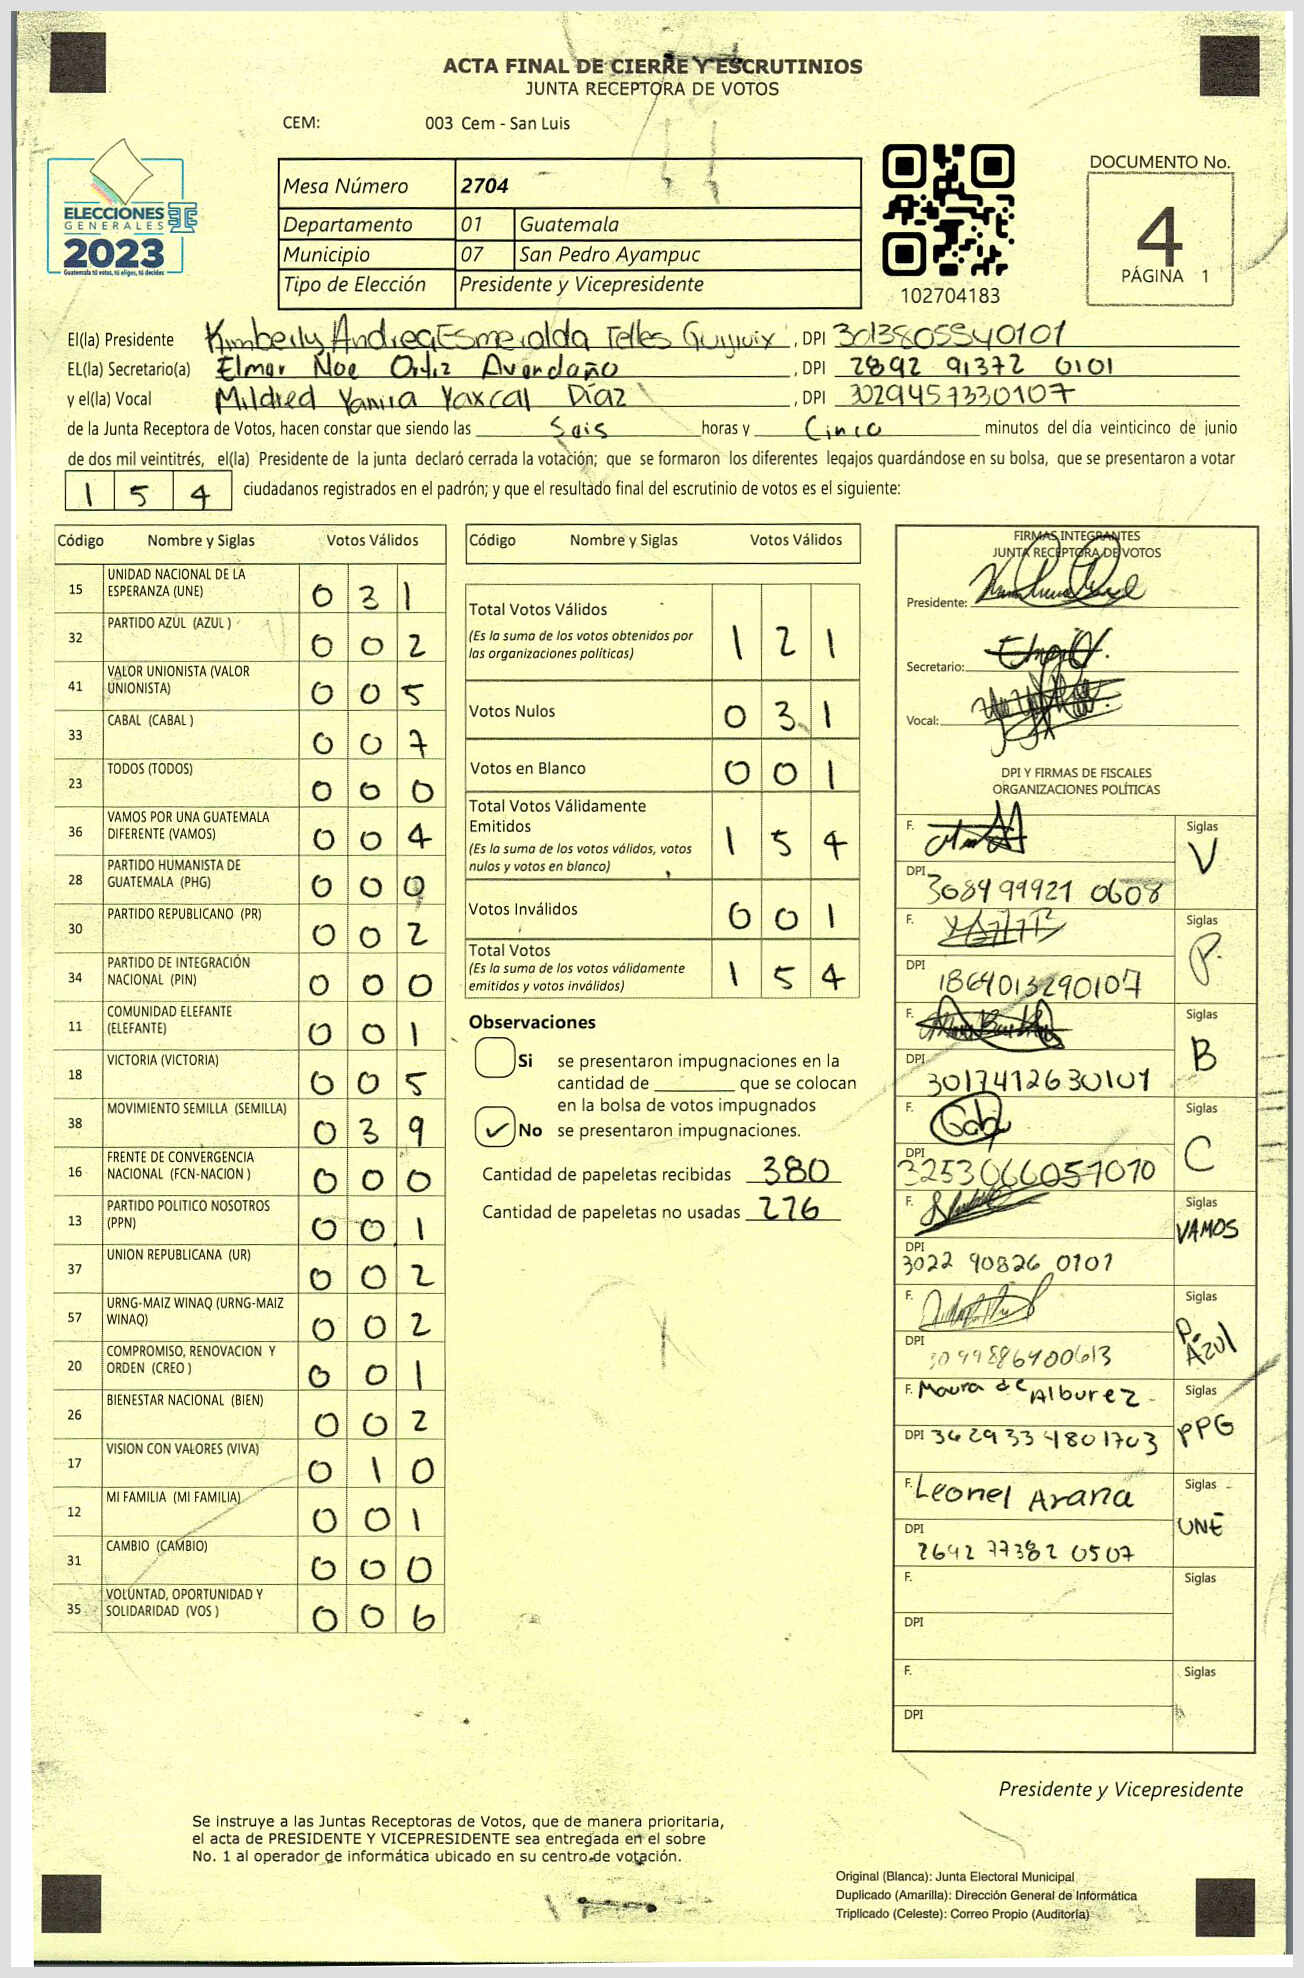 ACTA FINAL DE CIERRE Y ESCRUTINIOS
JUNTA RECEPTORA DE VOTOS
CEM: 003 Cem - San Luis
ELECCIONES
GENERALES
2023
Guatemala tú votas, tú eliges, tú decides
Mesa Número 2704
Departamento 01 Guatemala
Municipio 07 San Pedro Ayampuc
Tipo de Elección Presidente y Vicepresidente
102704183
DOCUMENTO No.
4
PÁGINA 1
El(la) Presidente Kimberly Andrea Esmeralda Telles , DPI 3013805540101
EL(la) Secretario(a) Elmer Noe Ortiz Avendaño , DPI 2892 91372 0101
y el(la) Vocal Mildred Yanira Yaxcal Díaz , DPI 3029457330107
de la Junta Receptora de Votos, hacen constar que siendo las Seis horas y Cinco minutos del día veinticinco de junio
de dos mil veintitrés, el(la) Presidente de la junta declaró cerrada la votación; que se formaron los diferentes legajos guardándose en su bolsa, que se presentaron a votar
1 5 4 ciudadanos registrados en el padrón; y que el resultado final del escrutinio de votos es el siguiente:
Código Nombre y Siglas Votos Válidos
15 UNIDAD NACIONAL DE LA ESPERANZA (UNE) 0 3 1
32 PARTIDO AZUL (AZUL ) 0 0 2
41 VALOR UNIONISTA (VALOR UNIONISTA) 0 0 5
33 CABAL (CABAL ) 0 0 7
23 TODOS (TODOS) 0 0 0
36 VAMOS POR UNA GUATEMALA DIFERENTE (VAMOS) 0 0 4
28 PARTIDO HUMANISTA DE GUATEMALA (PHG) 0 0 0
30 PARTIDO REPUBLICANO (PR) 0 0 2
34 PARTIDO DE INTEGRACIÓN NACIONAL (PIN) 0 0 0
11 COMUNIDAD ELEFANTE (ELEFANTE) 0 0 1
18 VICTORIA (VICTORIA) 0 0 5
38 MOVIMIENTO SEMILLA (SEMILLA) 0 3 9
16 FRENTE DE CONVERGENCIA NACIONAL (FCN-NACION ) 0 0 0
13 PARTIDO POLITICO NOSOTROS (PPN) 0 0 1
37 UNION REPUBLICANA (UR) 0 0 2
57 URNG-MAIZ WINAQ (URNG-MAIZ WINAQ) 0 0 2
20 COMPROMISO, RENOVACION Y ORDEN (CREO ) 0 0 1
26 BIENESTAR NACIONAL (BIEN) 0 0 2
17 VISION CON VALORES (VIVA) 0 1 0
12 MI FAMILIA (MI FAMILIA) 0 0 1
31 CAMBIO (CAMBIO) 0 0 0
35 VOLUNTAD, OPORTUNIDAD Y SOLIDARIDAD (VOS ) 0 0 6
Código Nombre y Siglas Votos Válidos
Total Votos Válidos 1 2 1
(Es la suma de los votos obtenidos por
las organizaciones políticas)
Votos Nulos 0 3 1
Votos en Blanco 0 0 1
Total Votos Válidamente
Emitidos 1 5 4
(Es la suma de los votos válidos, votos
nulos y votos en blanco)
Votos Inválidos 0 0 1
Total Votos 1 5 4
(Es la suma de los votos válidamente
emitidos y votos inválidos)
Observaciones
Si se presentaron impugnaciones en la
cantidad de ________ que se colocan
en la bolsa de votos impugnados
No se presentaron impugnaciones.
Cantidad de papeletas recibidas 380
Cantidad de papeletas no usadas 226
FIRMAS INTEGRANTES
JUNTA RECEPTORA DE VOTOS
Presidente:
Secretario:
Vocal:
DPI Y FIRMAS DE FISCALES
ORGANIZACIONES POLÍTICAS
F. Siglas V
DPI 3084 99921 0608
F. Siglas P.
DPI 1864013290107
F. Siglas B
DPI 3017412630101
F. Gaby Siglas C
DPI 3253066051010
F. Siglas VAMOS
DPI 3022 90826 0101
F. Siglas P. Azul
DPI 3099886400613
F. Maura de Alburez Siglas PPG
DPI 3629334801703
F. Leonel Arana Siglas UNE
DPI 2642 77382 0507
F. Siglas
DPI
F. Siglas
DPI
Presidente y Vicepresidente
Se instruye a las Juntas Receptoras de Votos, que de manera prioritaria,
el acta de PRESIDENTE Y VICEPRESIDENTE sea entregada en el sobre
No. 1 al operador de informática ubicado en su centro de votación.
Original (Blanca): Junta Electoral Municipal
Duplicado (Amarilla): Dirección General de Informática
Triplicado (Celeste): Correo Propio (Auditoría)